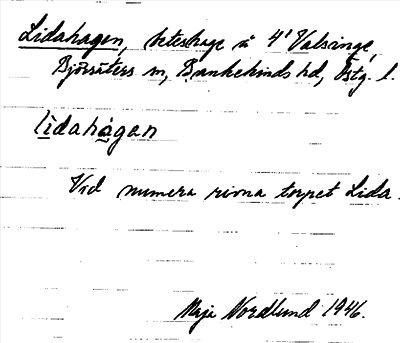 Lidahagen, beteshage å 4¹ Valsinge,
Björsäters sn, Bankekinds hd, Östg. l.
lìdahàgan
Vid numera rivna torpet Lida.
Maja Nordlund 1946.